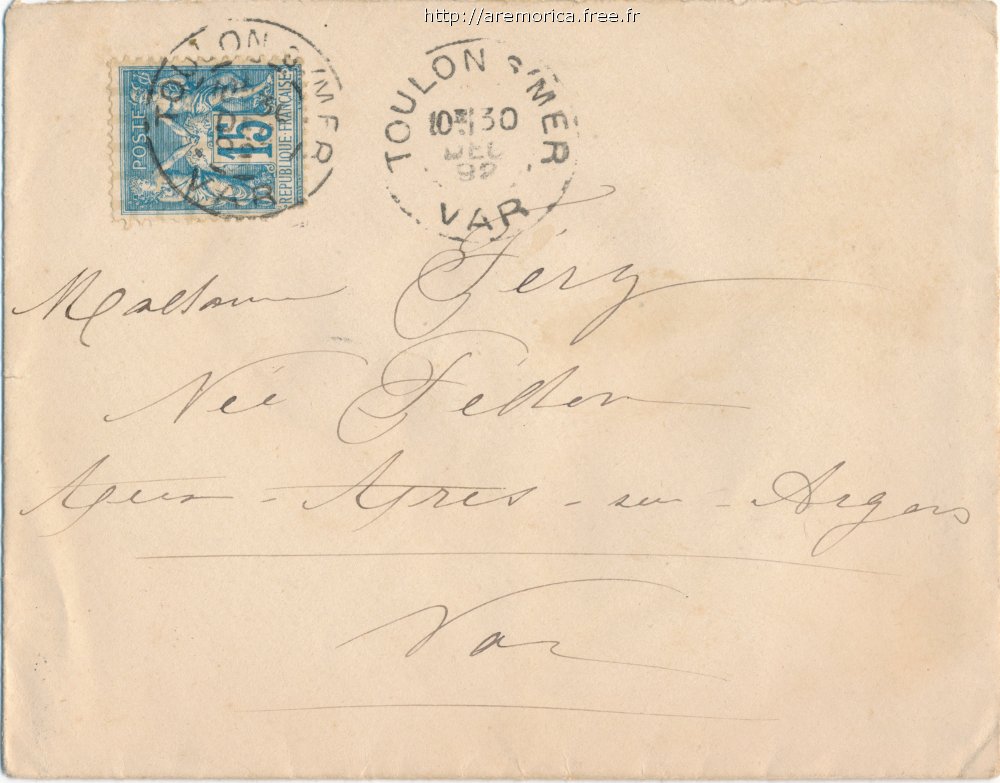 http://aremorica.free.fr
TOULON S/MER
VAR
POSTES
15
REPUBLIQUE FRANÇAISE
TOULON S/MER
10 30
DEC
92
VAR
Madame Féry
Née Fellon
Aux - Arcs - sur - Argens
Var